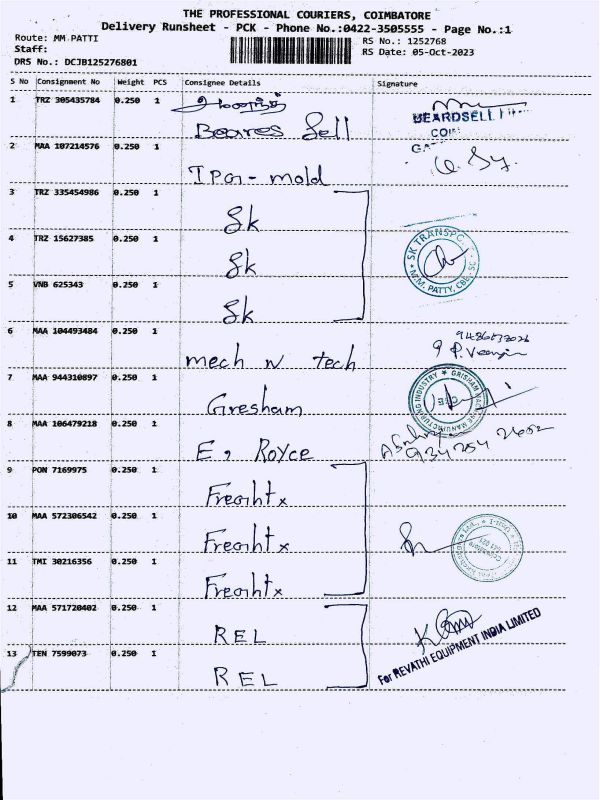 THE PROFESSIONAL COURIERS, COIMBATORE
Delivery Runsheet - PCK - Phone No.:0422-3505555 - Page No.:1
Route: MM PATTI
RS No.: 1252768
Staff:
RS Date: 05-Oct-2023
DRS No.: DCJB125276801
S No Consignment No Weight PCS Consignee Details Signature
1 TRZ 305435784 0.250 1
Beares Sell
BEARDSELL
2 MAA 107214576 0.250 1
mold
3 TRZ 335454986 0.250 1
Sk
4 TRZ 15627385 0.250 1
Sk
SK TRANSPO
M.M. PATTY, CBE
5 VNB 625343 0.250 1
Sk
6 MAA 104493484 0.250 1
mech N tech
7 MAA 944310897 0.250 1
Gresham
8 MAA 106479218 0.250 1
E, Royce
9 PON 7169975 0.250 1
Freaihtx
10 MAA 572306542 0.250 1
Freaihtx
11 TMI 30216356 0.250 1
Freaihtx
12 MAA 571720402 0.250 1
REL
For REVATHI EQUIPMENT INDIA LIMITED
13 TEN 7599073 0.250 1
REL